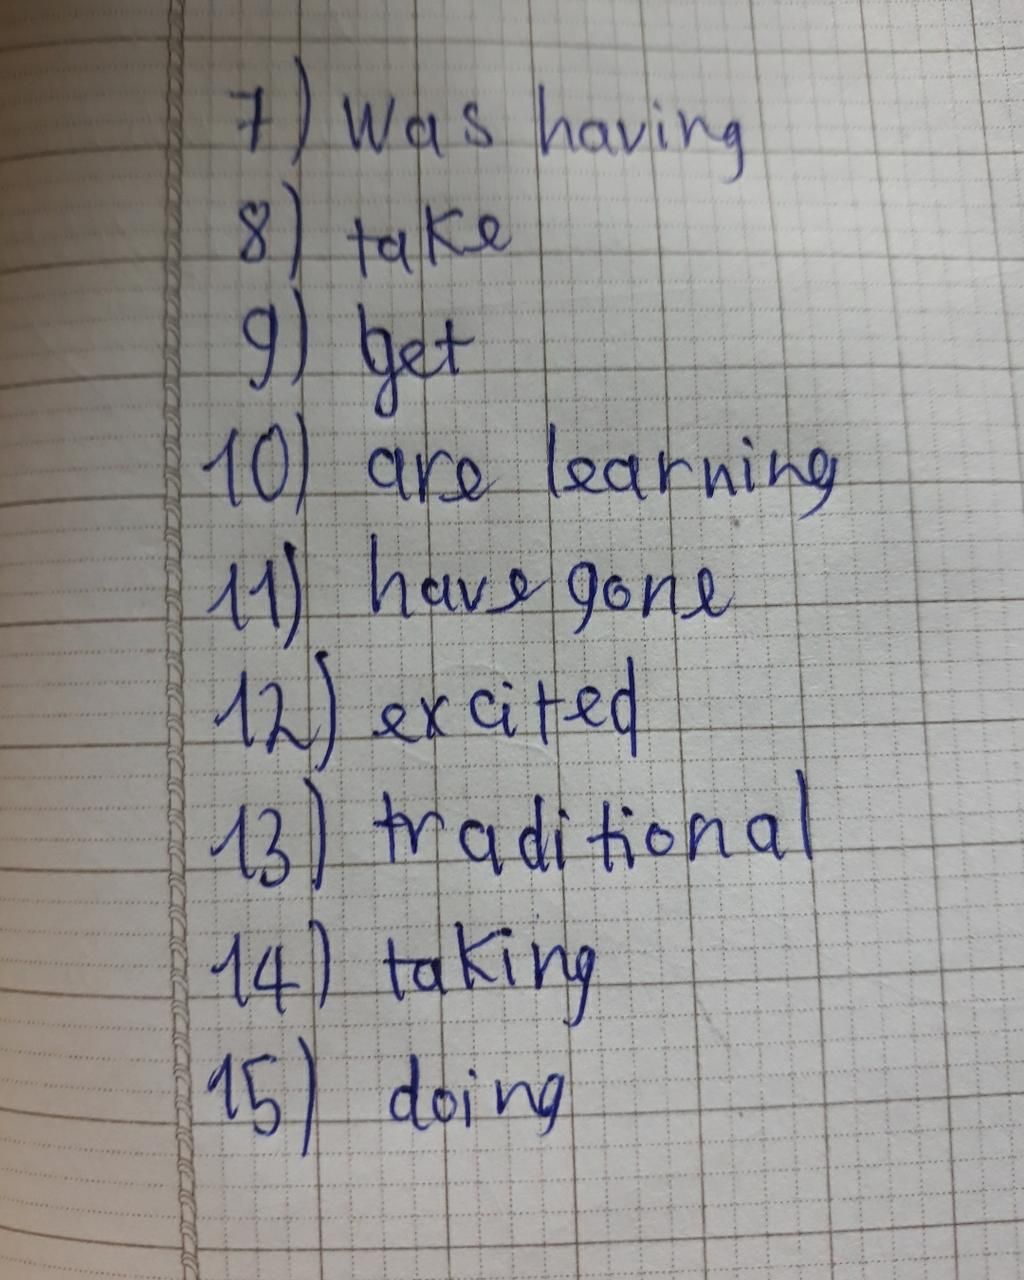 7) Was having
8) take
9) get
10) are learning
11) have gone
12) excited
13) traditional
14) taking
15) doing